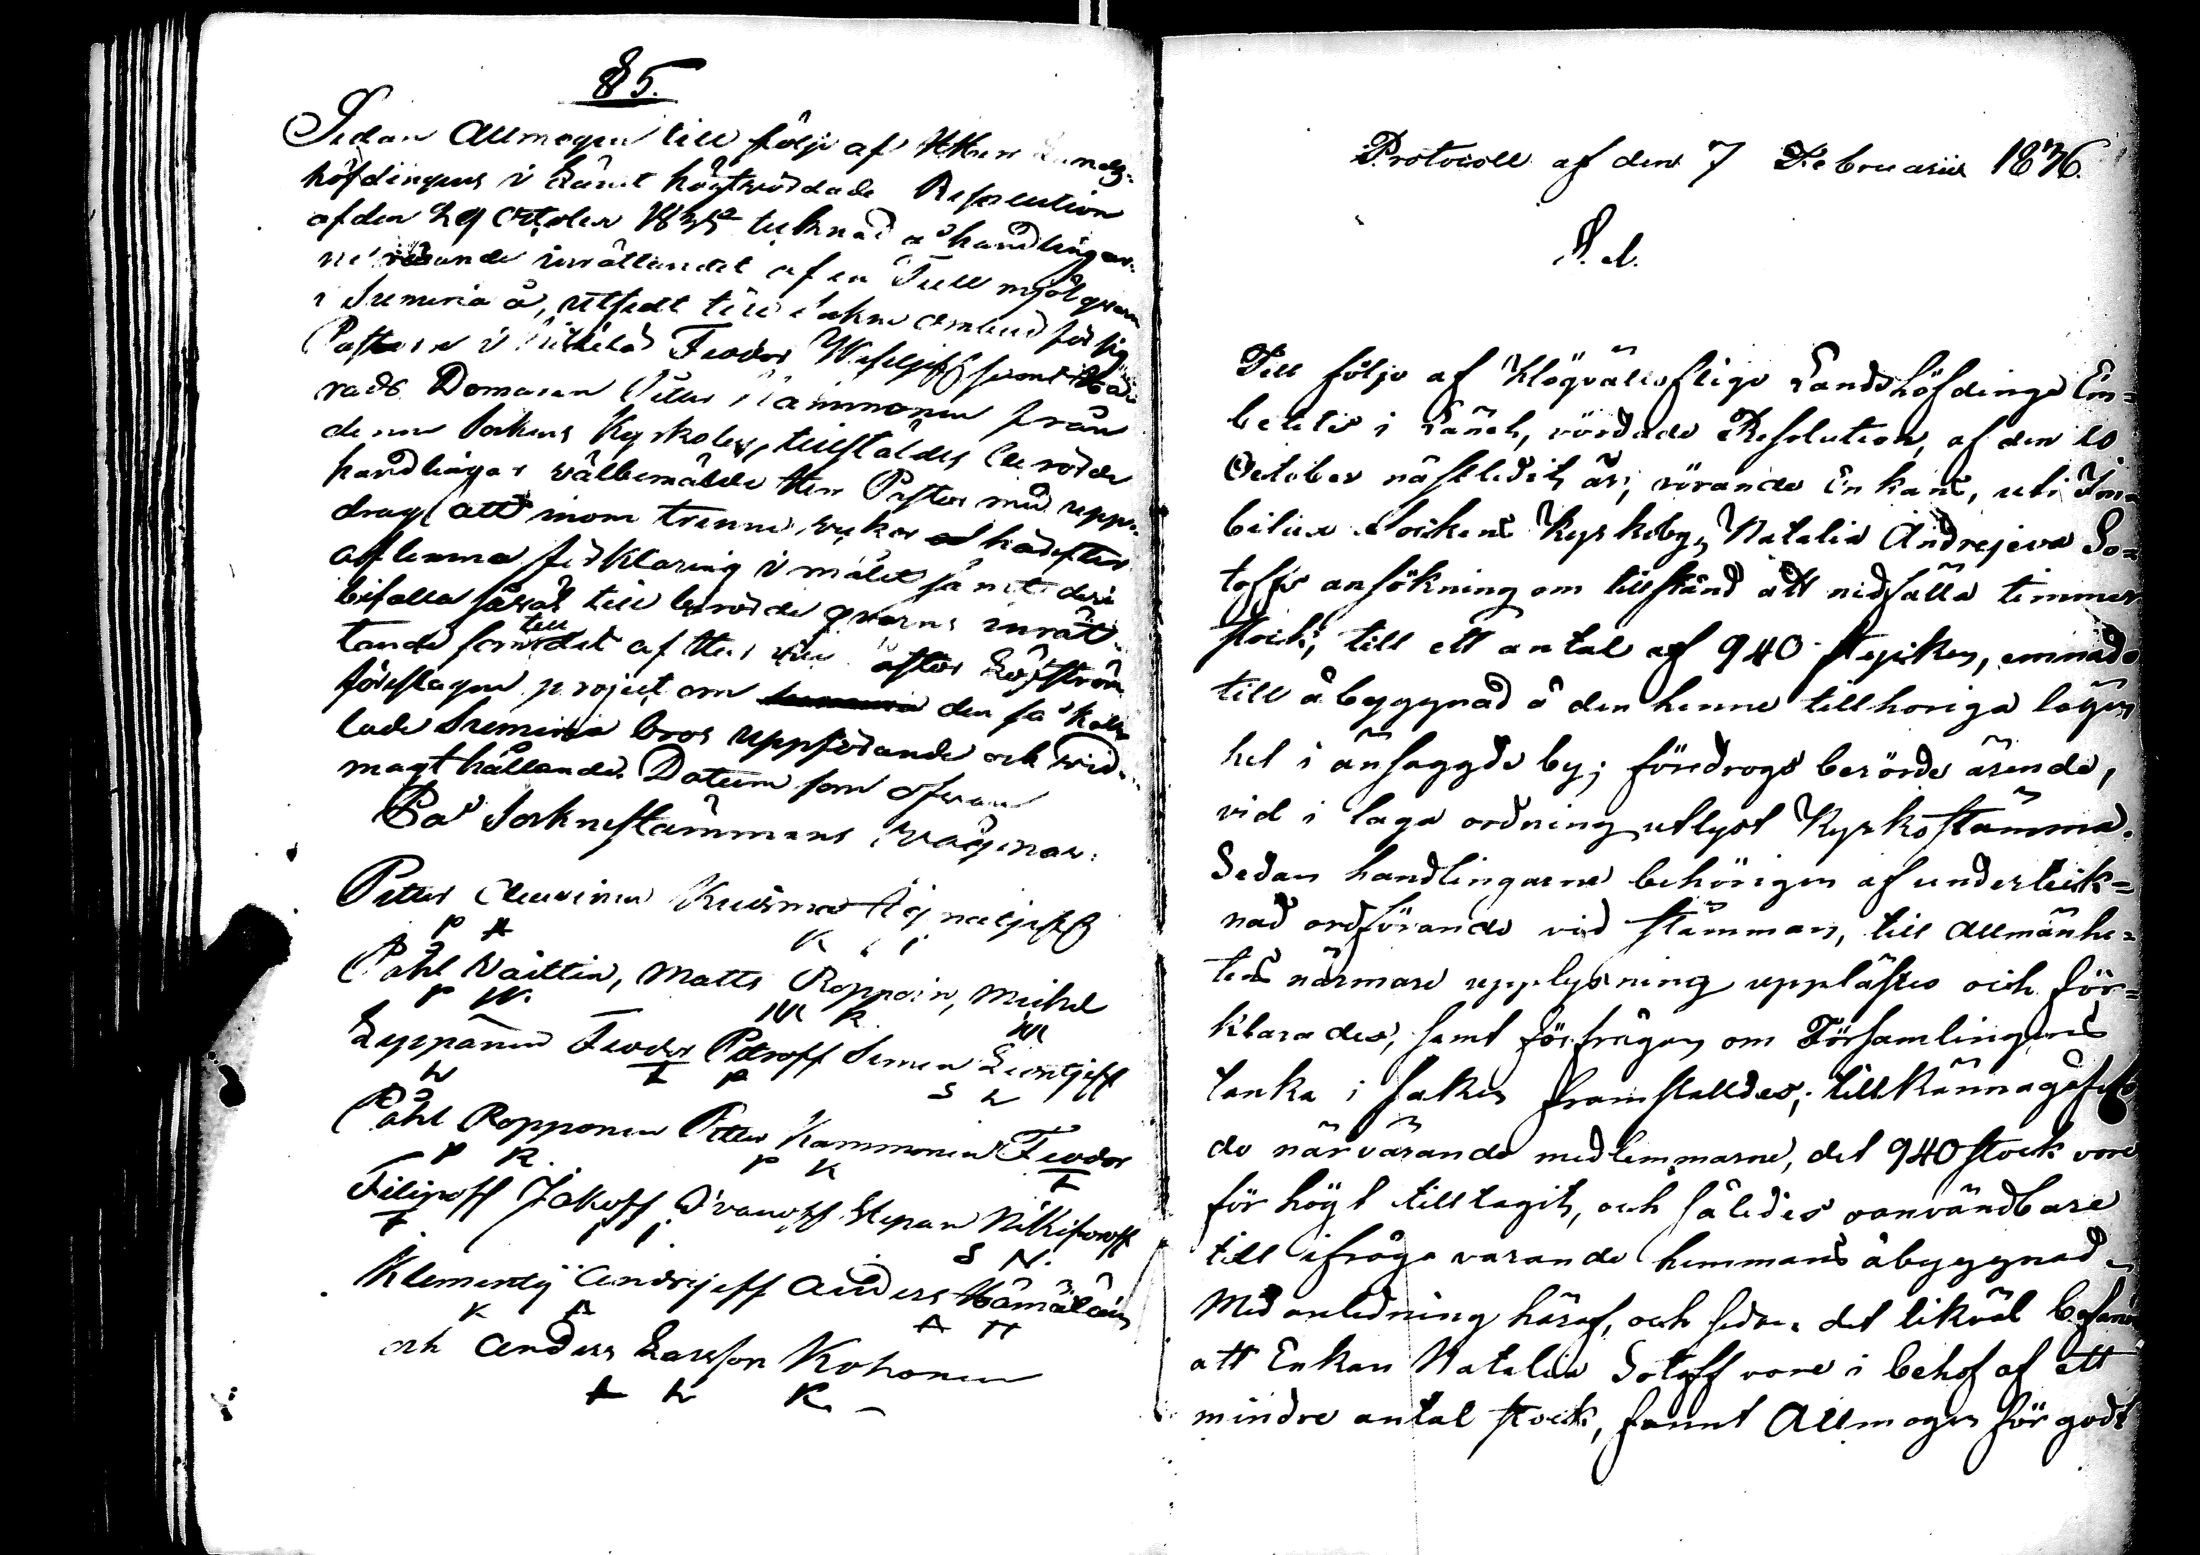 § 5.
Sedan Allmogen till följe af Herr Lands-
höfdingens i Länet högtvördade Resolution
af den 29 October 1835 tecknad å handlingar-
ne rörande inrättandet af en Tull mjölqvarn
i Sumeria å, utsedt till Sokne ombud för sig
Pastorn i Feodor Wasiljeff samt
rads Domaren Petter Kammonen från
denna Sockens Kyrkoby, tillstäldes berörde
handlingar välbemälde Herr Pastor med upp-
drag att inom trenne veckor härefter
aflemna förklaring i målet samt deri
bifalla såväl till berörde qvarns inrät-
tande som till det af Herr Löfström
föreslagne project om den så kal-
lade Sumeria bros uppförande och vid-
magthållande. Datum som ofvan
På Soknestämmans vägnar:
Petter Kusma Ignatjeff
P A K I
Påhl Näittin, Matts Roppoin, Michel
P N. M R. M
Leppänen Feodor Petroff Semen Leontjeff
L F P S L
Påhl Ropponen Petter Kammonen Feodor
P R. P K F
Filipoff Jakoff Ivanoff Stepan Nikiforoff
F I I S N.
Klementij Andrejeff Anders Hämäläin
K A A H
och Anders Larsson Kohonen
A L K.
Protocoll af den 7 Februarii 1836.
§. 1.
Till följe af Högvälloflige Landshöfdinge Em-
betets i Länet, vördade Resolution, af den 10
October näſtledit år; rörande Enkans, uti Im-
bilax Sockens Kyrkoby, Natalia Andrejeva So-
toffs ansökning om tillstånd att nidfälla timmer
stock, till ett antal af 940 stycken, ämnade
till åbyggnad å den henne tillhöriga lägen
het i ansaggde by; föredrogs berörde ärende,
vid i laga ordning utlyst Kyrkostämma.
Sedan handlingarne behörigen af underteck=
nad ordförande vid stämman, till Allmänhe=
tens närmare upplysning upplästes och för=
klarades, samt förfrågan om Församlingens
tanka i saken framstalldes; tillkännagåfvo
de närvärande medlemmarne, det 940 stock vore
för högt tilltagit, och således oanvändbare
till ifråga varande hemmans åbyggnad.
Med anledning häraf, och sedan det likväl befans
att Enkan Natalia Sotoff vore i behof af ett
mindre antal stock, fannt Allmogen för godt